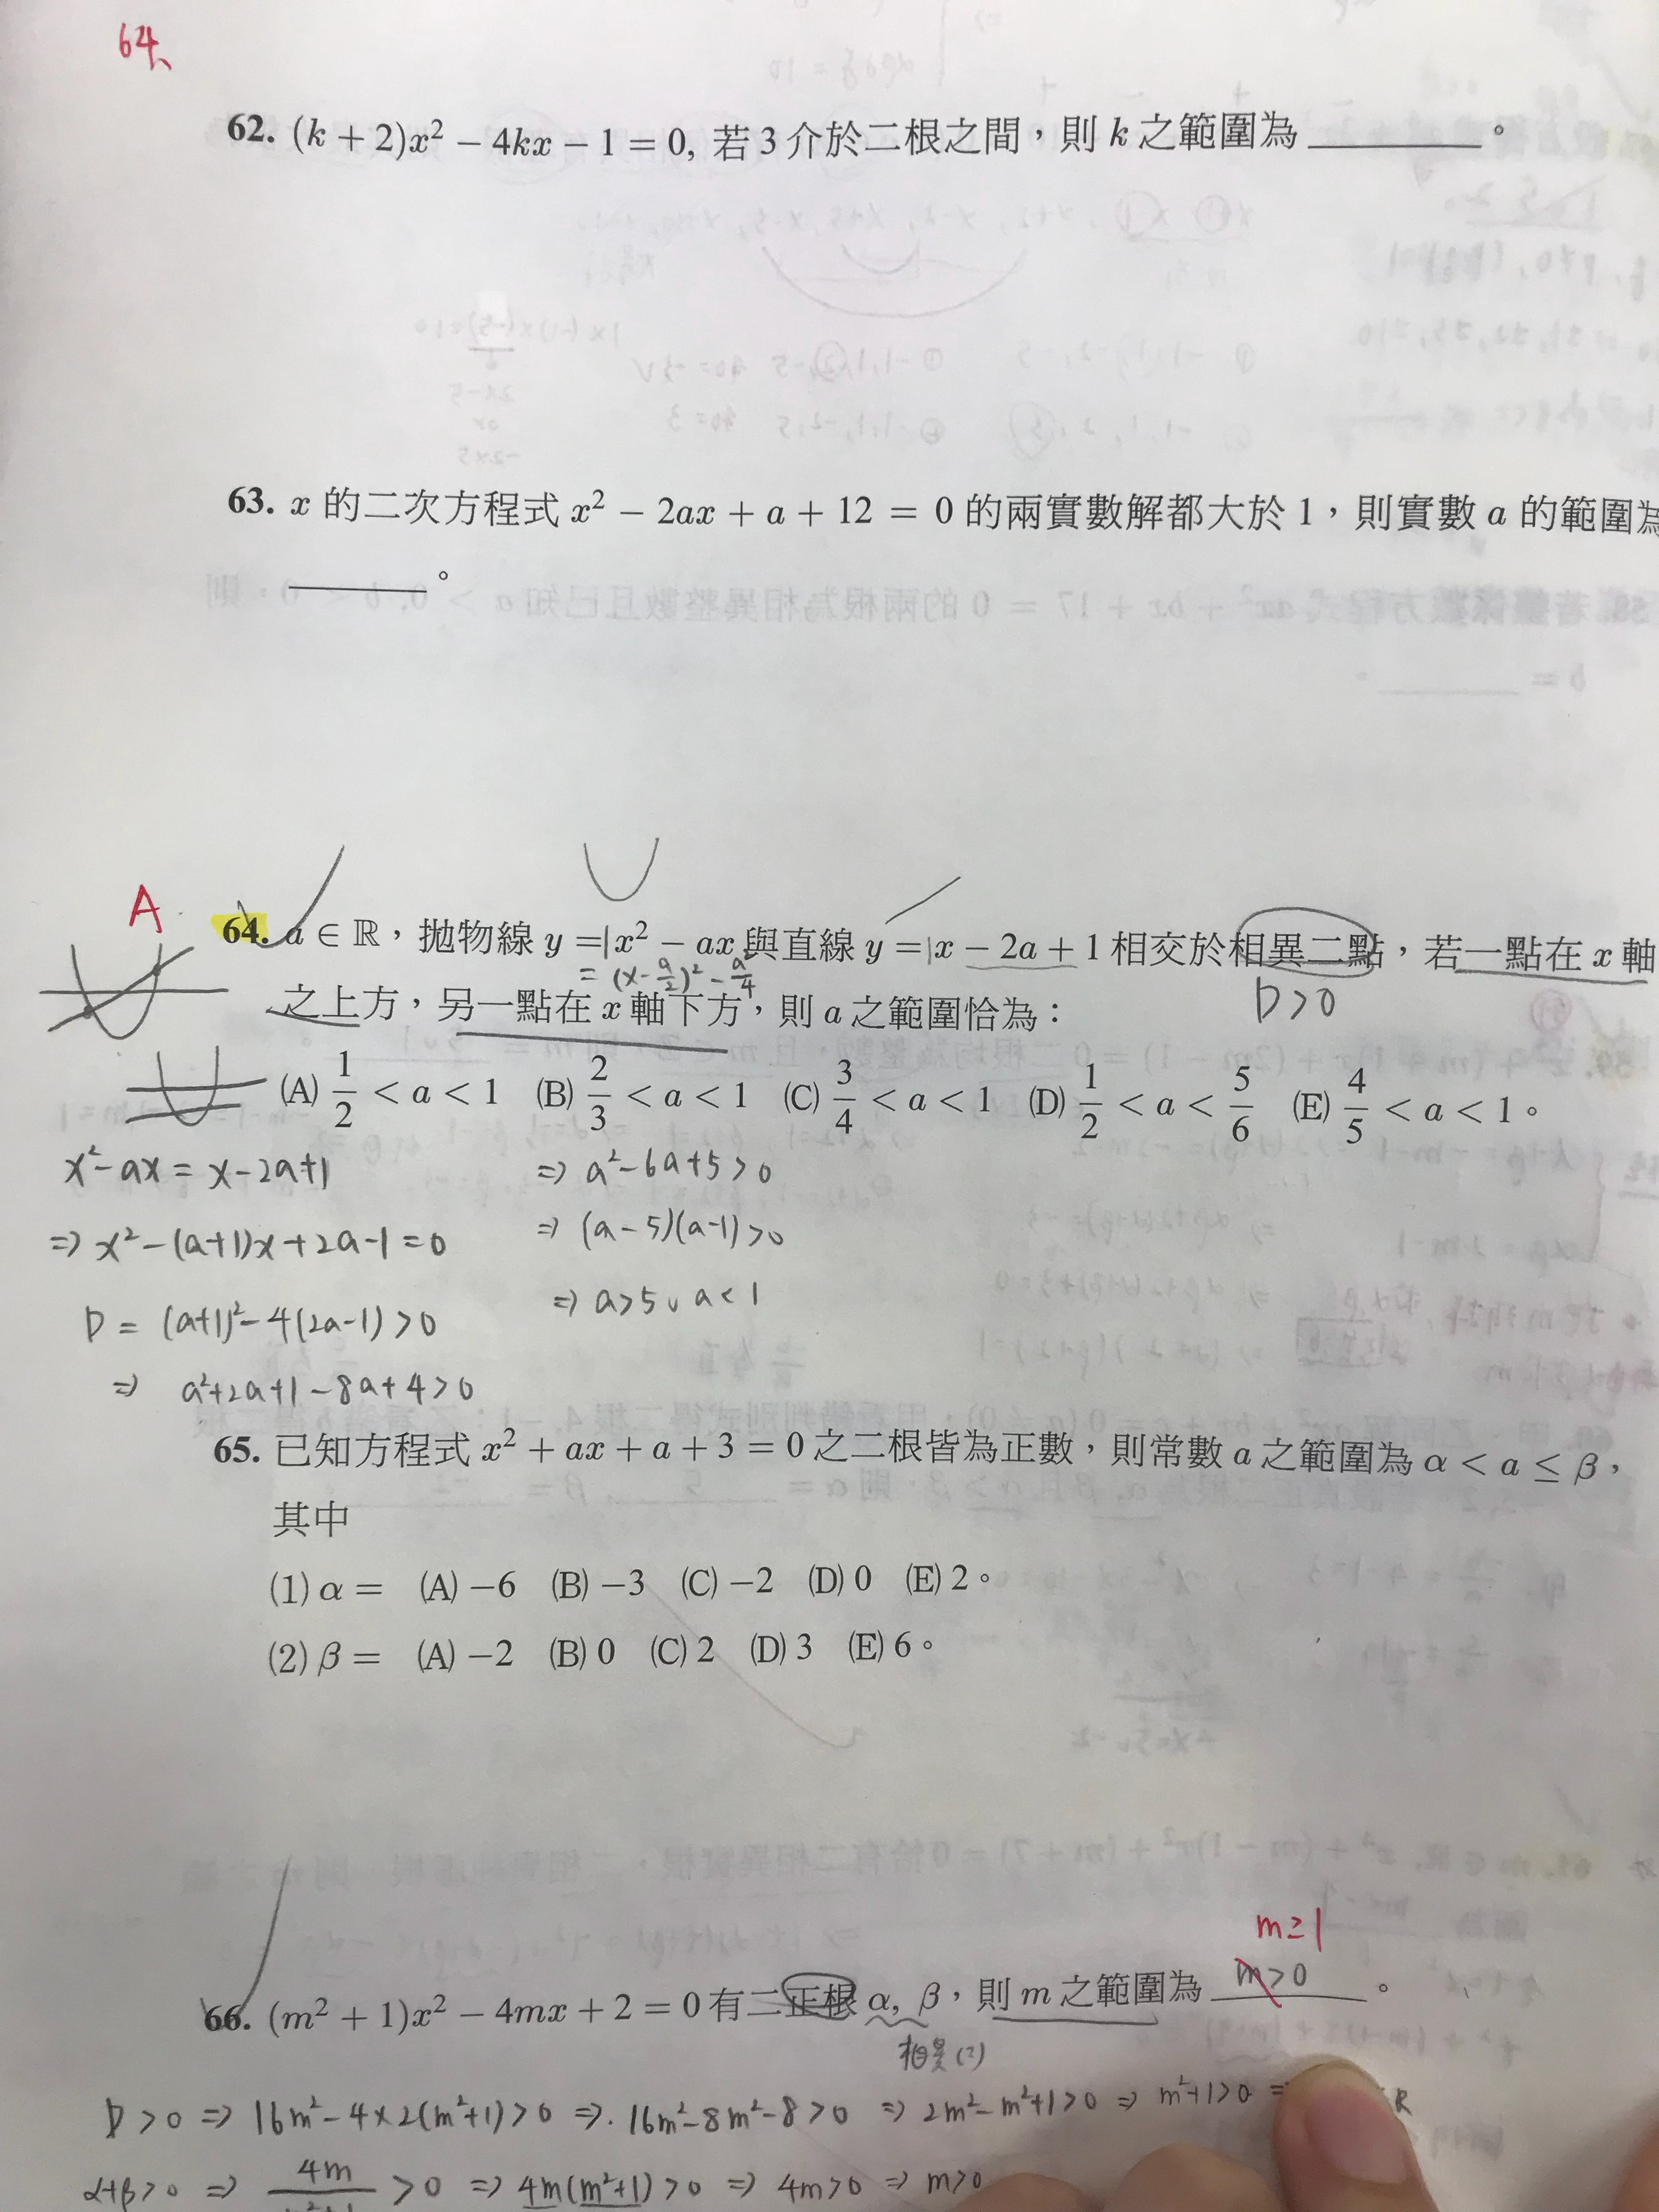 64、
62. (k + 2)x² − 4kx − 1 = 0, 若 3 介於二根之間，則 k 之範圍為 ________ 。
63. x 的二次方程式 x² − 2ax + a + 12 = 0 的兩實數解都大於 1，則實數 a 的範圍為
________ 。
A
64. a ∈ ℝ，拋物線 y = x² − ax 與直線 y = x − 2a + 1 相交於相異二點，若一點在 x 軸
= (x − a/2)² − a²/4
之上方，另一點在 x 軸下方，則 a 之範圍恰為：
D > 0
(A) 1/2 < a < 1 (B) 2/3 < a < 1 (C) 3/4 < a < 1 (D) 1/2 < a < 5/6 (E) 4/5 < a < 1。
x² − ax = x − 2a + 1
⇒ x² − (a+1)x + 2a − 1 = 0
D = (a+1)² − 4(2a−1) > 0
⇒ a² + 2a + 1 − 8a + 4 > 0
⇒ a² − 6a + 5 > 0
⇒ (a − 5)(a − 1) > 0
⇒ a > 5 ∪ a < 1
65. 已知方程式 x² + ax + a + 3 = 0 之二根皆為正數，則常數 a 之範圍為 α < a ≤ β，
其中
(1) α = (A) −6 (B) −3 (C) −2 (D) 0 (E) 2。
(2) β = (A) −2 (B) 0 (C) 2 (D) 3 (E) 6。
m ≥ 1
m > 0
66. (m² + 1)x² − 4mx + 2 = 0 有二正根 α, β，則 m 之範圍為 ________ 。
相異(?)
D > 0 ⇒ 16m² − 4×2(m²+1) > 0 ⇒ 16m² − 8m² − 8 > 0 ⇒ 2m² − m² + 1 > 0 ⇒ m² + 1 > 0 ⇒ R
α+β > 0 ⇒ 4m/m²+1 > 0 ⇒ 4m(m²+1) > 0 ⇒ 4m > 0 ⇒ m > 0